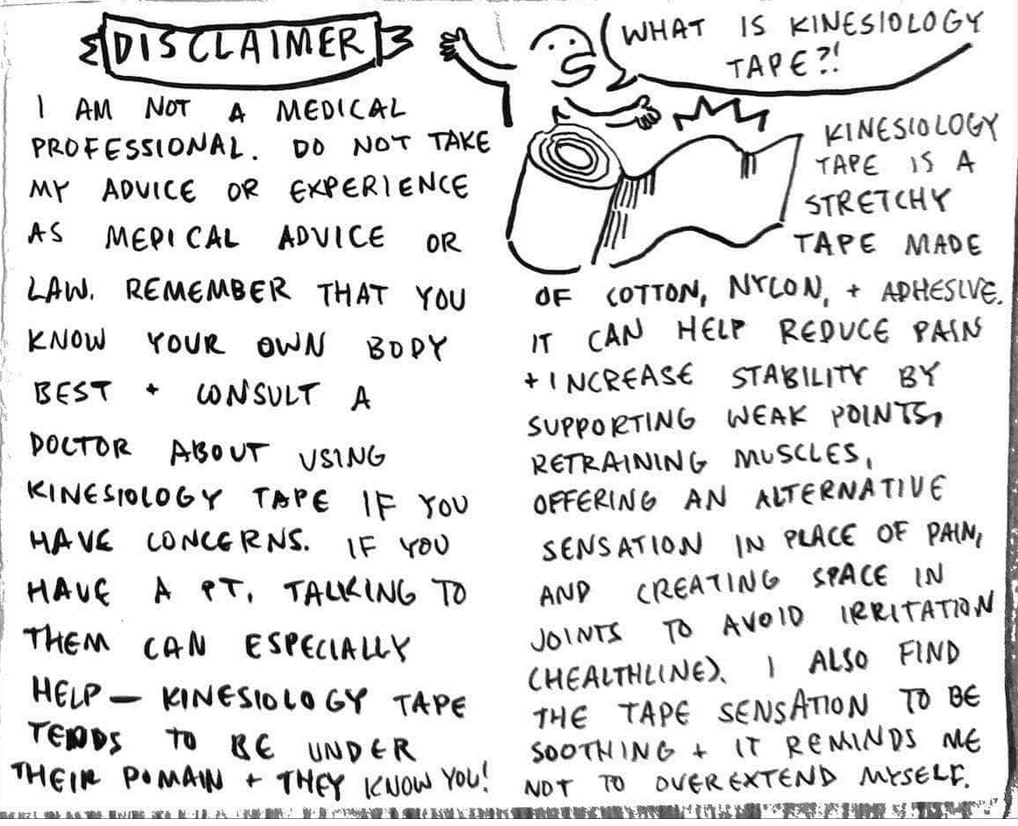 DISCLAIMER
I AM NOT A MEDICAL
PROFESSIONAL. DO NOT TAKE
MY ADVICE OR EXPERIENCE
AS MEDICAL ADVICE OR
LAW. REMEMBER THAT YOU
KNOW YOUR OWN BODY
BEST + CONSULT A
DOCTOR ABOUT USING
KINESIOLOGY TAPE IF YOU
HAVE CONCERNS. IF YOU
HAVE A PT, TALKING TO
THEM CAN ESPECIALLY
HELP — KINESIOLOGY TAPE
TENDS TO BE UNDER
THEIR DOMAIN + THEY KNOW YOU!
WHAT IS KINESIOLOGY
TAPE?!
KINESIOLOGY
TAPE IS A
STRETCHY
TAPE MADE
OF COTTON, NYLON, + ADHESIVE.
IT CAN HELP REDUCE PAIN
+ INCREASE STABILITY BY
SUPPORTING WEAK POINTS,
RETRAINING MUSCLES,
OFFERING AN ALTERNATIVE
SENSATION IN PLACE OF PAIN,
AND CREATING SPACE IN
JOINTS TO AVOID IRRITATION
(HEALTHLINE). I ALSO FIND
THE TAPE SENSATION TO BE
SOOTHING + IT REMINDS ME
NOT TO OVEREXTEND MYSELF.